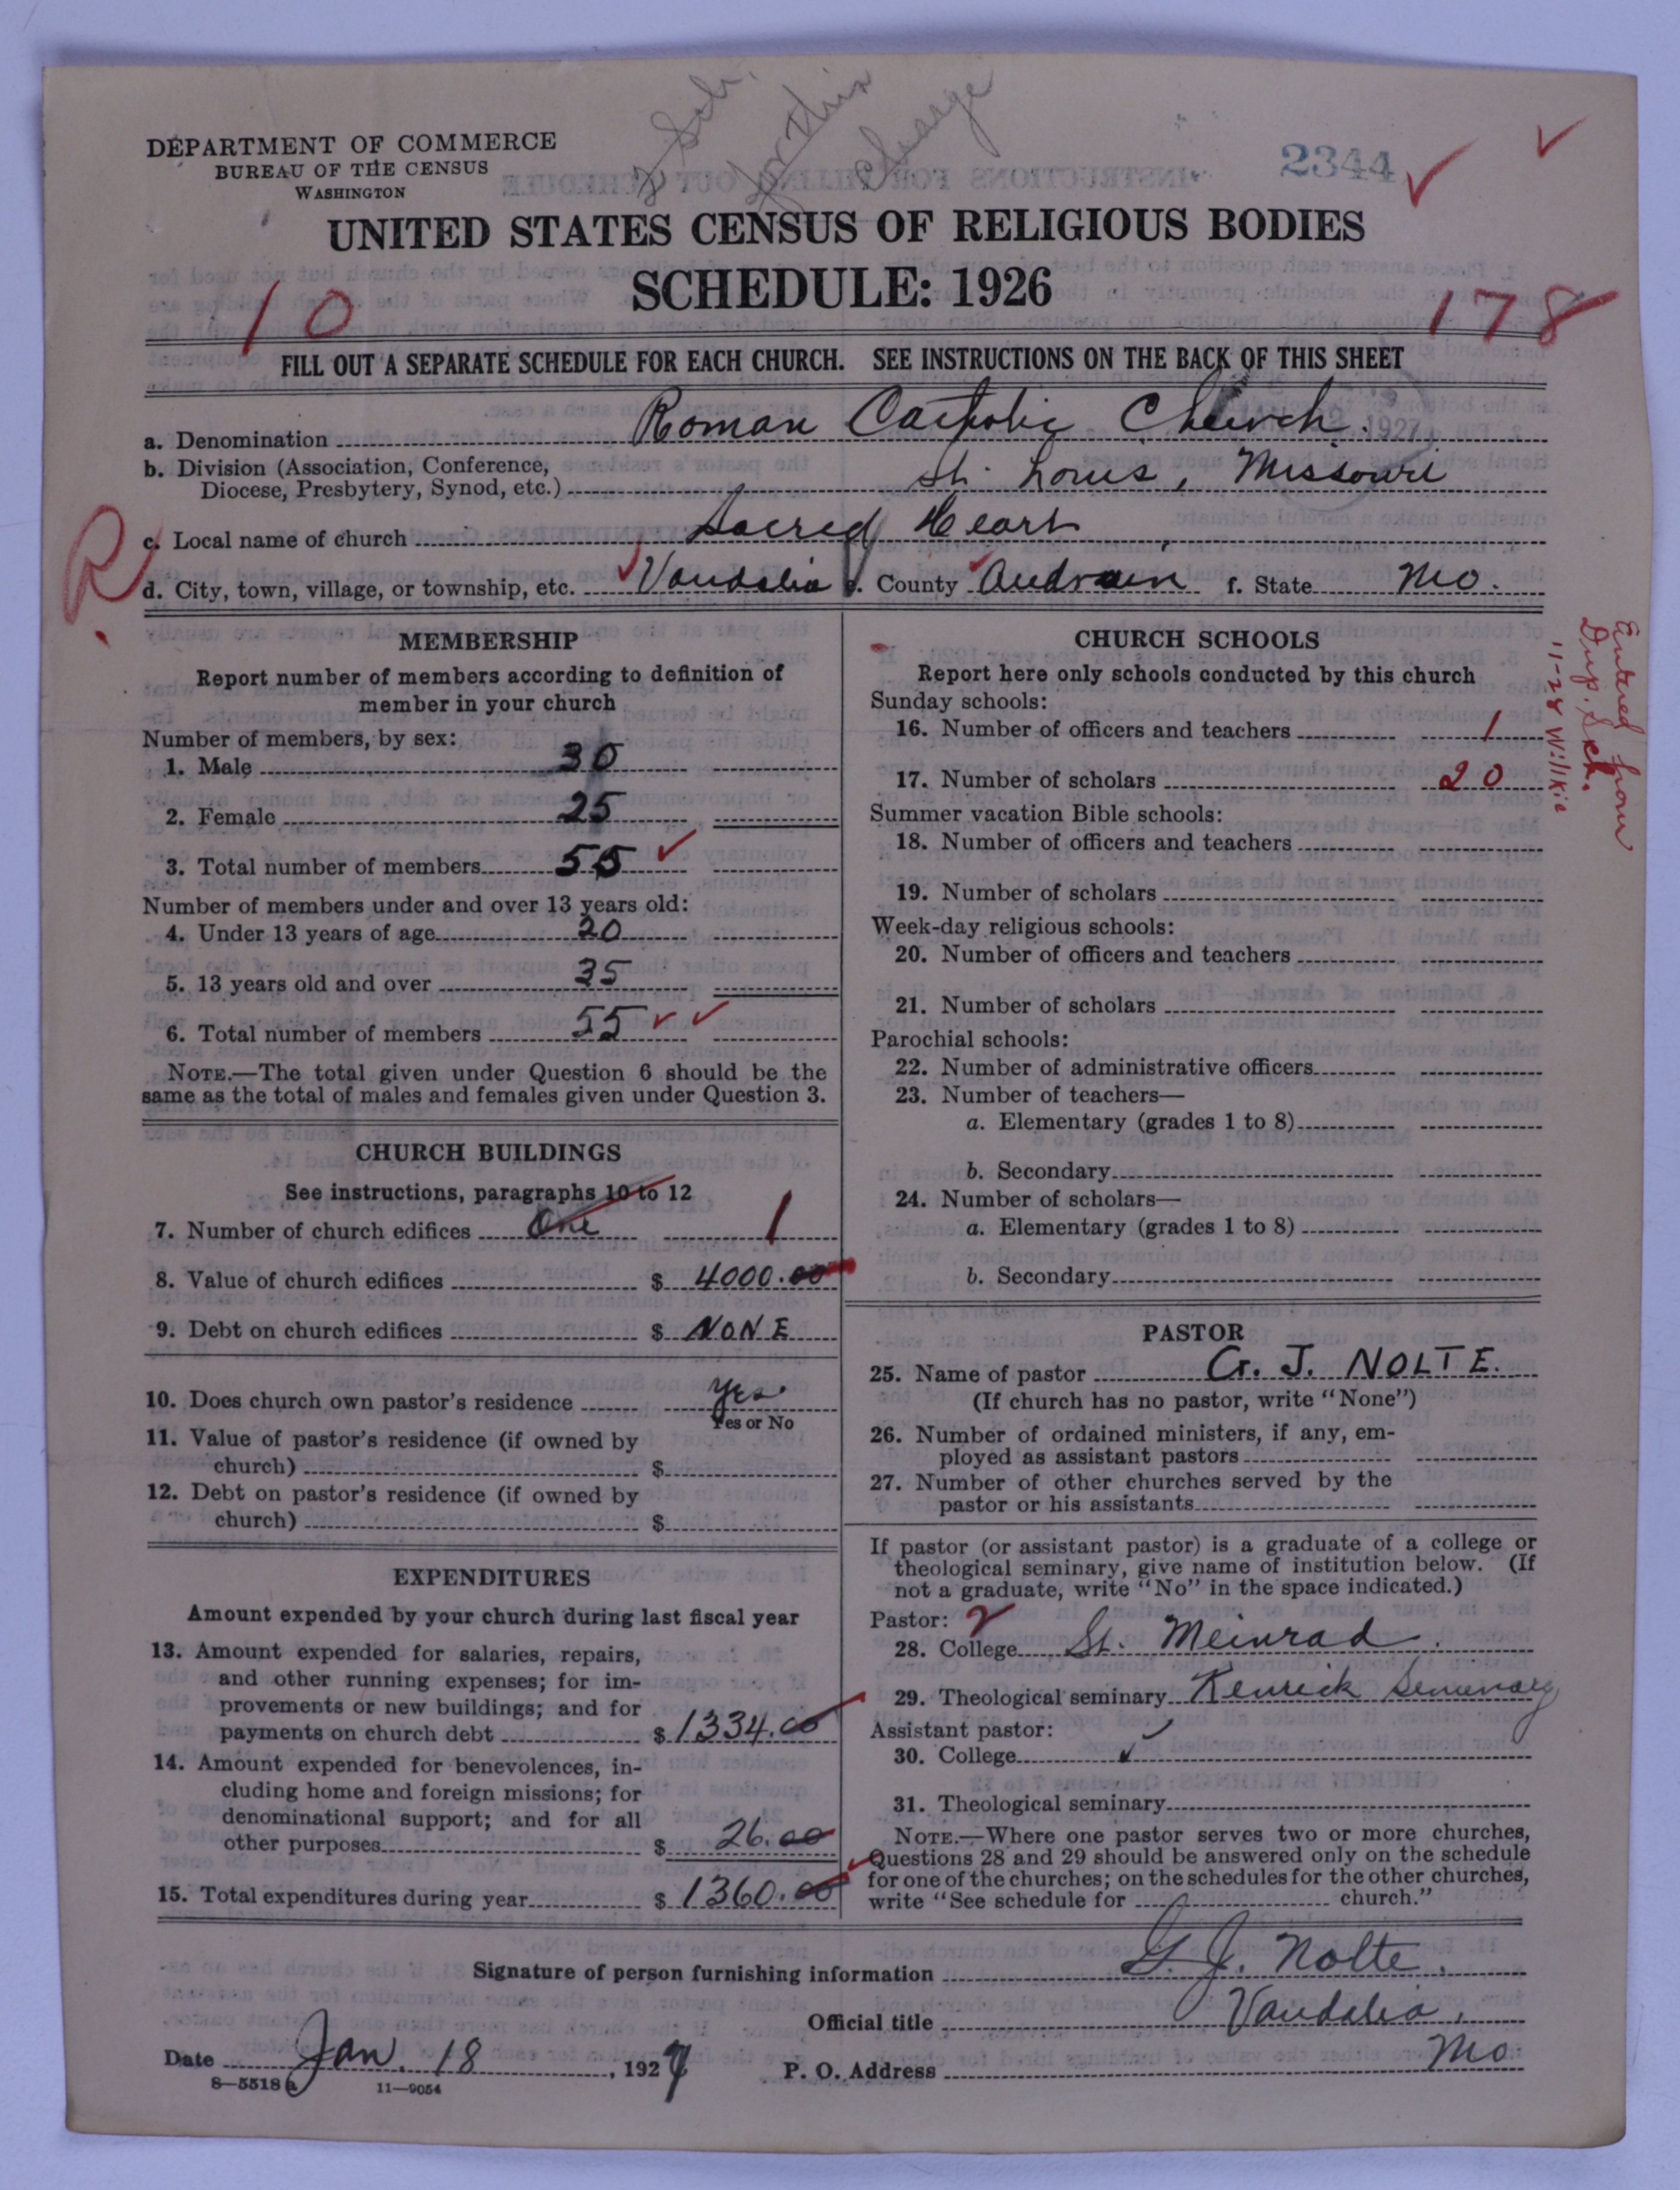 2 Sch.
for this
charge
DEPARTMENT OF COMMERCE
BUREAU OF THE CENSUS
WASHINGTON
2344
UNITED STATES CENSUS OF RELIGIOUS BODIES
SCHEDULE: 1926
10
178
FILL OUT A SEPARATE SCHEDULE FOR EACH CHURCH. SEE INSTRUCTIONS ON THE BACK OF THIS SHEET
a. Denomination Roman Catholic Church.
b. Division (Association, Conference,
Diocese, Presbytery, Synod, etc.) St. Louis, Missouri
R
c. Local name of church Sacred Heart
d. City, town, village, or township, etc. Vandalia e. County Audrain f. State Mo.
MEMBERSHIP
Report number of members according to definition of
member in your church
Number of members, by sex:
1. Male 30
2. Female 25
3. Total number of members 55
Number of members under and over 13 years old:
4. Under 13 years of age 20
5. 13 years old and over 35
6. Total number of members 55
NOTE.—The total given under Question 6 should be the
same as the total of males and females given under Question 3.
CHURCH BUILDINGS
See instructions, paragraphs 10 to 12
7. Number of church edifices One 1
8. Value of church edifices $ 4000.00
9. Debt on church edifices $ NONE
10. Does church own pastor's residence Yes
Yes or No
11. Value of pastor's residence (if owned by
church) $
12. Debt on pastor's residence (if owned by
church) $
EXPENDITURES
Amount expended by your church during last fiscal year
13. Amount expended for salaries, repairs,
and other running expenses; for im-
provements or new buildings; and for
payments on church debt $ 1334.00
14. Amount expended for benevolences, in-
cluding home and foreign missions; for
denominational support; and for all
other purposes $ 26.00
15. Total expenditures during year $ 1360.00
CHURCH SCHOOLS
Report here only schools conducted by this church
Sunday schools:
16. Number of officers and teachers 1
17. Number of scholars 20
Summer vacation Bible schools:
18. Number of officers and teachers
19. Number of scholars
Week-day religious schools:
20. Number of officers and teachers
21. Number of scholars
Parochial schools:
22. Number of administrative officers
23. Number of teachers—
a. Elementary (grades 1 to 8)
b. Secondary
24. Number of scholars—
a. Elementary (grades 1 to 8)
b. Secondary
Entered from
Dup. Sch.
11-28 Wilikie
PASTOR
25. Name of pastor G. J. NOLTE.
(If church has no pastor, write "None")
26. Number of ordained ministers, if any, em-
ployed as assistant pastors
27. Number of other churches served by the
pastor or his assistants
If pastor (or assistant pastor) is a graduate of a college or
theological seminary, give name of institution below. (If
not a graduate, write "No" in the space indicated.)
Pastor: 2
28. College St. Meinrad.
29. Theological seminary Kenrick Seminary
Assistant pastor:
30. College
31. Theological seminary
NOTE.—Where one pastor serves two or more churches,
Questions 28 and 29 should be answered only on the schedule
for one of the churches; on the schedules for the other churches,
write "See schedule for church."
Signature of person furnishing information G. J. Nolte.
Official title Vandalia,
Date Jan. 18, 1927 P. O. Address Mo.
8—5518 a 11—9054